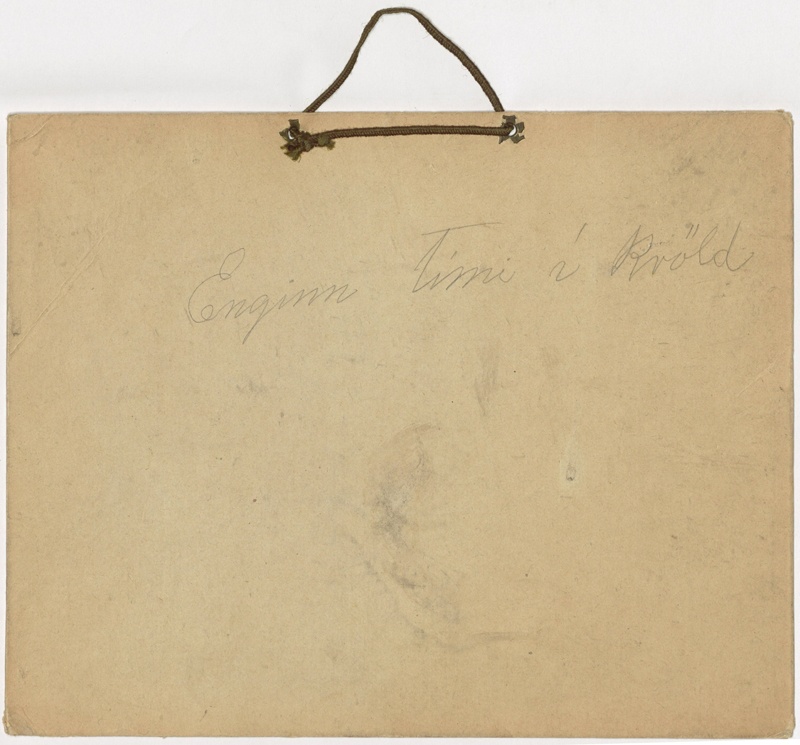 Enginn Tími í kvöld